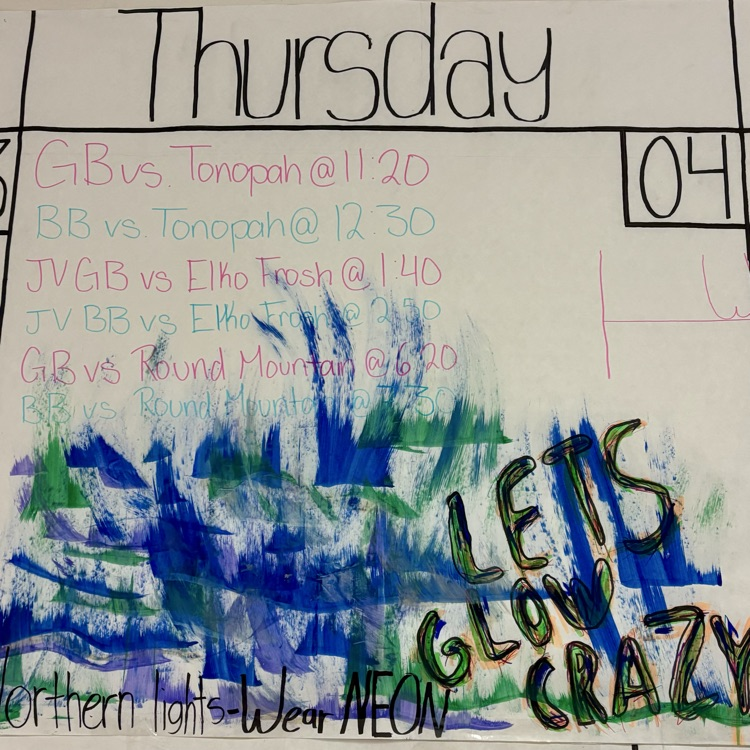 Thursday
04
GB vs. Tonopah @ 11:20
BB vs. Tonopah @ 12:30
JV GB vs Elko Frosh @ 1:40
JV BB vs Elko Frosh @ 2:50
GB vs Round Mountain @ 6:20
BB vs Round Mountain @ 7:30
LETS
GLOW
CRAZY
Northern lights-Wear NEON